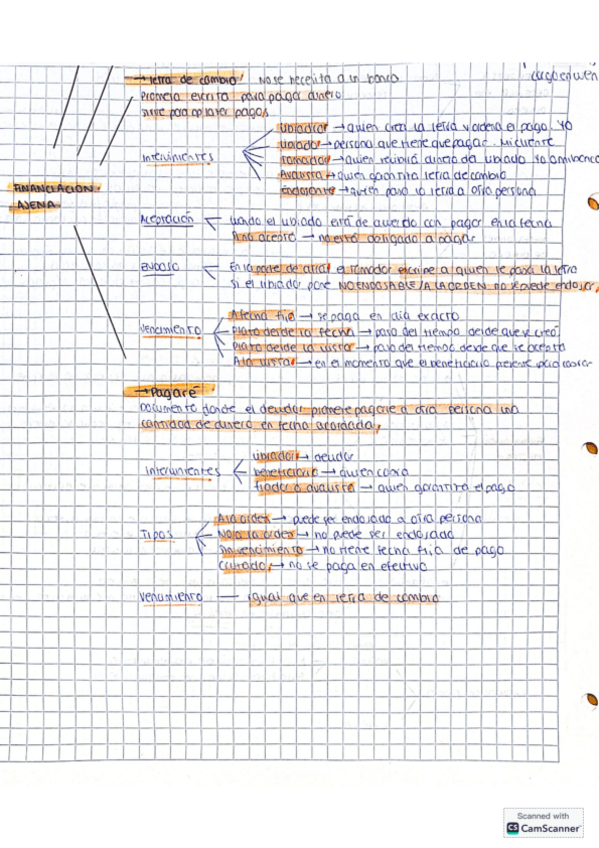 → Letra de cambio: No se necesita a un banco
Promesa escrita para pagar dinero
sirve para aplazar pagos
FINANCIACIÓN
AJENA
Intervinientes
Librador → quien crea la letra y ordena el pago. Yo
Librado → persona que tiene que pagar. Mi cliente
Tomador → quien recibirá dinero da librado. Yo o mi banco
Avalista → quien garantiza letra de cambio
Endosante → quien pasa la letra a otra persona
Aceptación
cuando el librado está de acuerdo con pagar en la fecha
Si no acepta → no está obligado a pagar
ENDOSO
En la parte de atrás el tomador escribe a quien le pasa la letra
Si el librado pone NO ENDOSABLE/A LA ORDEN no se puede endosar
Vencimiento
A fecha fija → se paga en día exacto
Plazo desde la fecha → pasa del tiempo desde que se creó
Plazo desde la vista → pasa del tiempo desde que se acepta
A la vista → en el momento que el beneficiario
→ Pagaré
Documento donde el deudor promete pagarle a otra persona una
cantidad de dinero en fecha acordada
Intervinientes
Librador → deudor
beneficiario → quien cobra
fiador o avalista → quien garantiza el pago
Tipos
A la orden → puede ser endosado a otra persona
No a la orden → no puede ser endosado
Sin vencimiento → no tiene fecha fija de pago
Cruzado → no se paga en efectivo
Vencimiento — igual que en letra de cambio
Scanned with
CS CamScanner